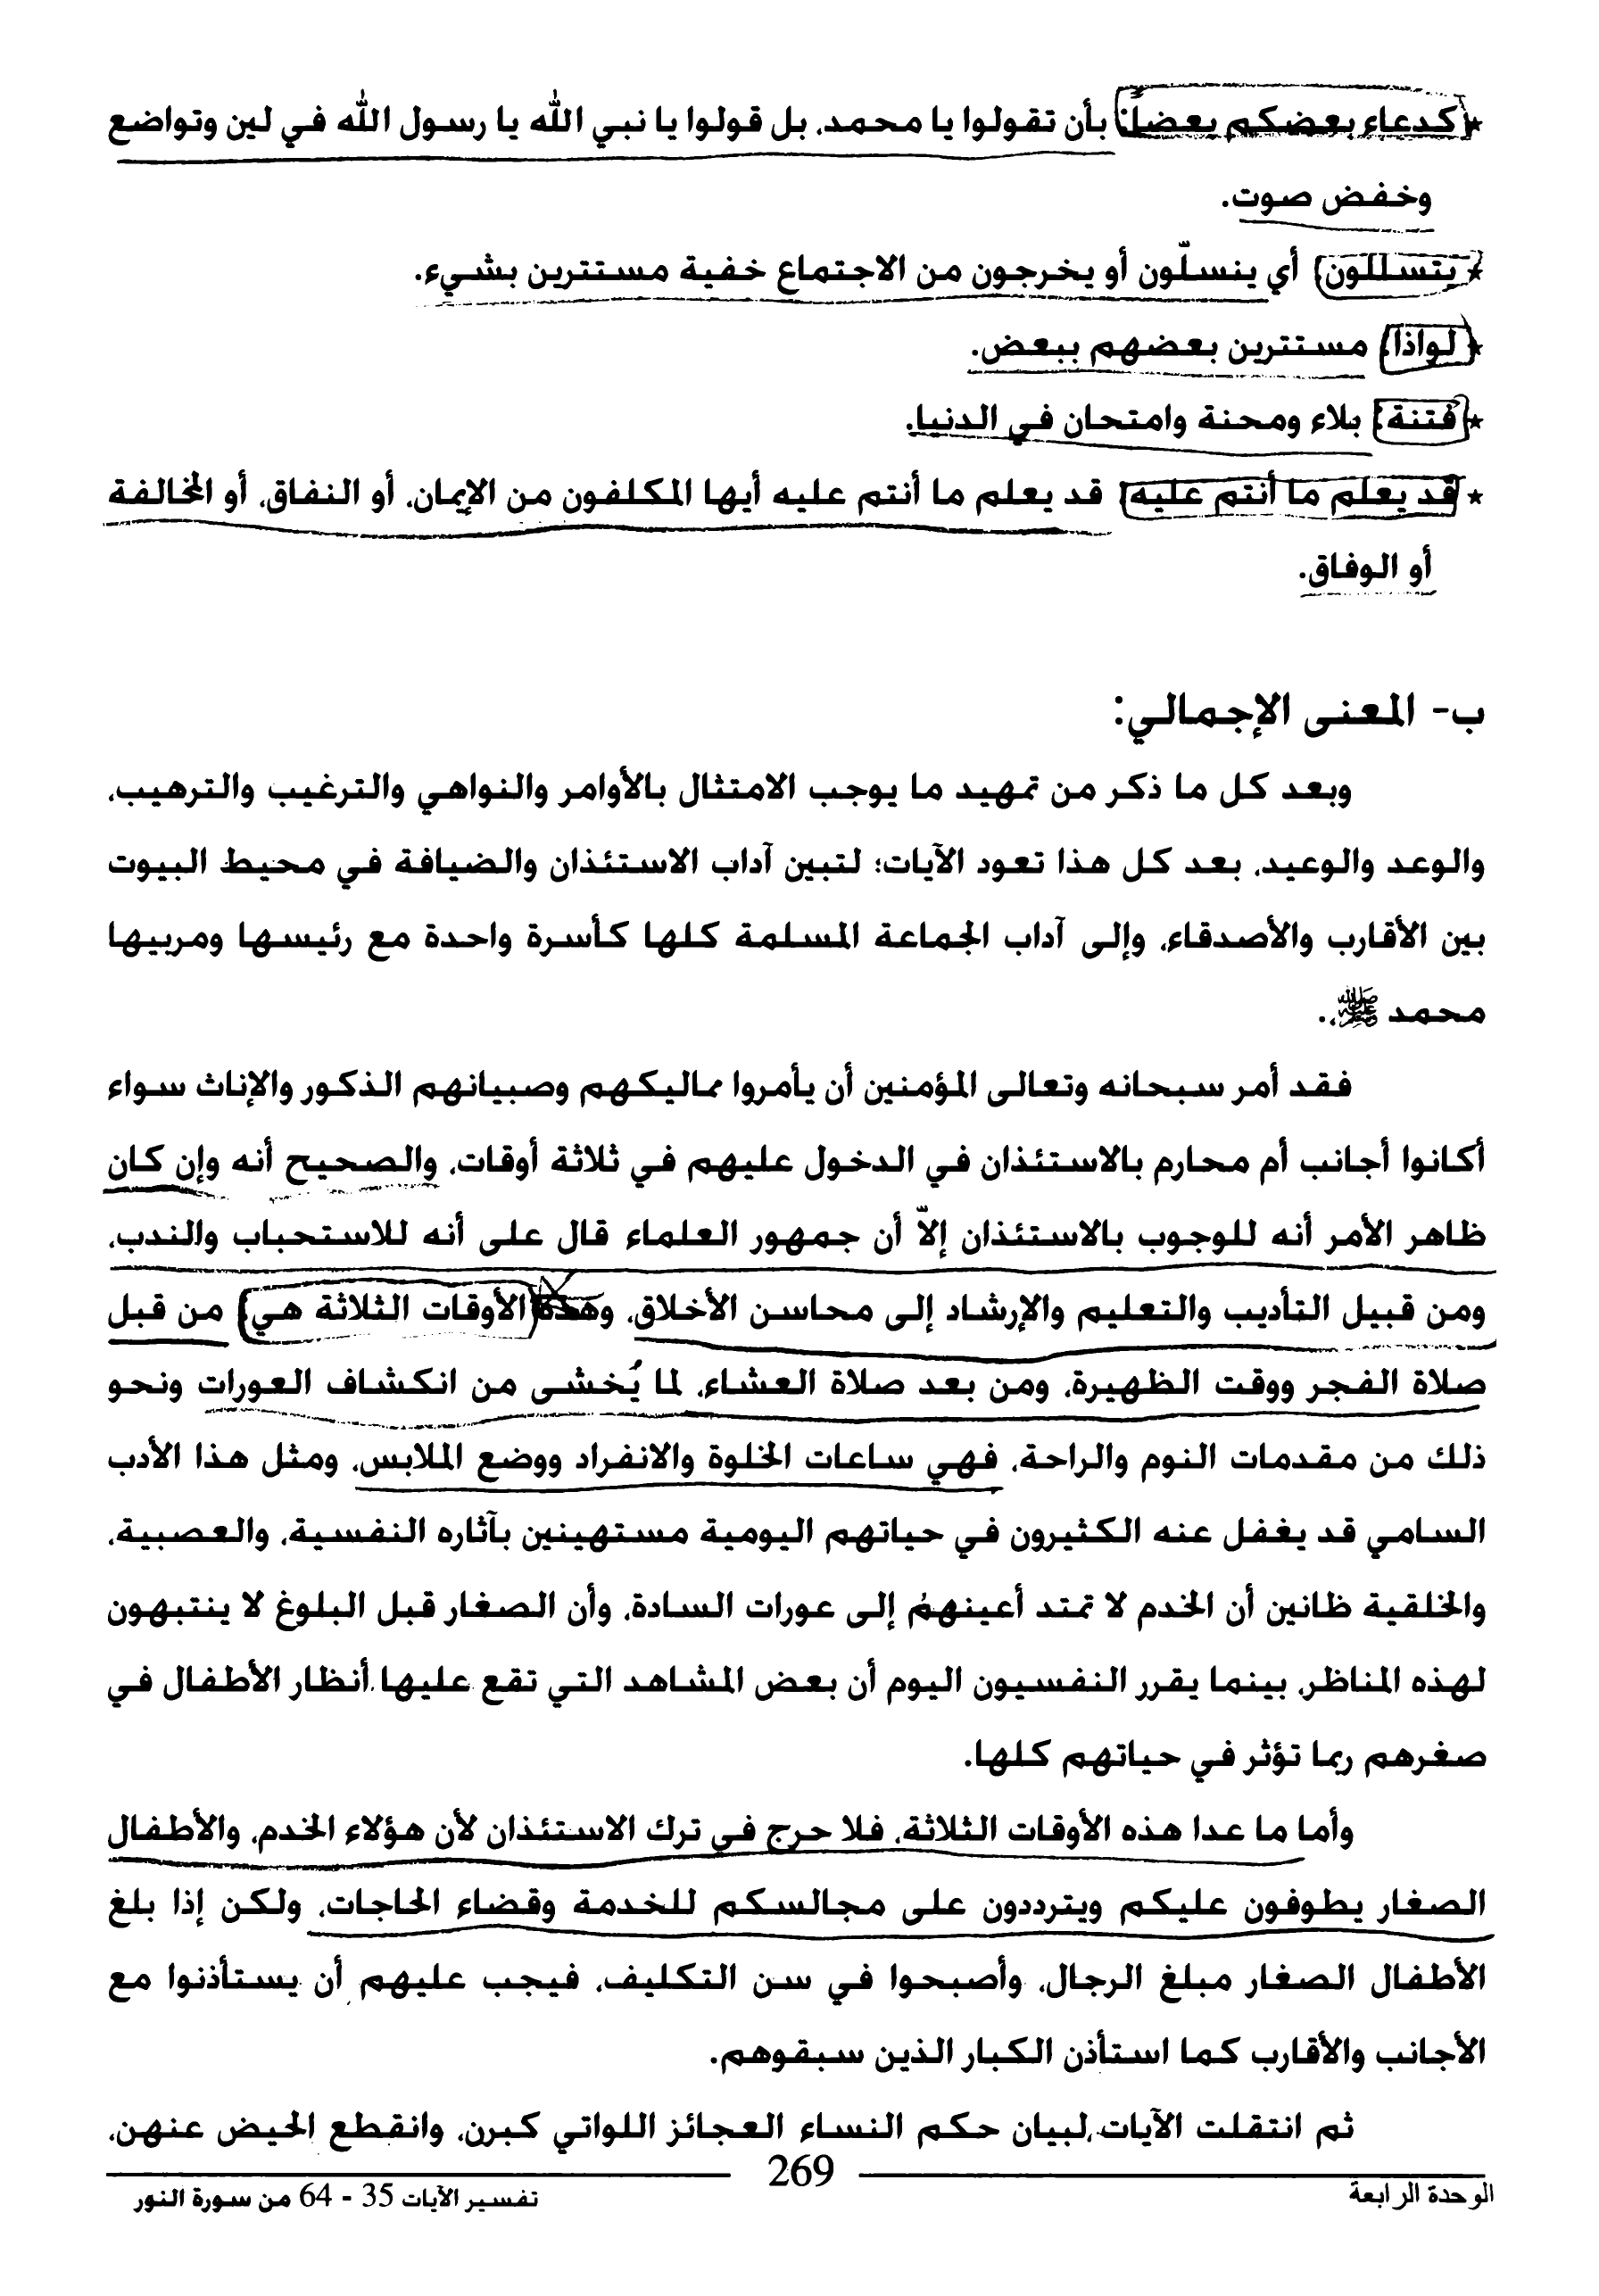 * كدعاء بعضكم بعضاً: بأن تقولوا يا محمد، بل قولوا يا نبي الله يا رسول الله في لين وتواضع
وخفض صوت.
* يتسللون: أي ينسلّون أو يخرجون من الاجتماع خفية مستترين بشيء.
* لواذا: مستترين بعضهم ببعض.
* فتنة: بلاء ومحنة وامتحان في الدنيا.
* قد يعلم ما أنتم عليه: قد يعلم ما أنتم عليه أيها المكلفون من الإيمان، أو النفاق، أو المخالفة
أو الوفاق.
ب- المعنى الإجمالي:
وبعد كل ما ذكر من تمهيد ما يوجب الامتثال بالأوامر والنواهي والترغيب والترهيب،
والوعد والوعيد، بعد كل هذا تعود الآيات؛ لتبين آداب الاستئذان والضيافة في محيط البيوت
بين الأقارب والأصدقاء، وإلى آداب الجماعة المسلمة كلها كأسرة واحدة مع رئيسها ومربيها
محمد ﷺ.
فقد أمر سبحانه وتعالى المؤمنين أن يأمروا مماليكهم وصبيانهم الذكور والإناث سواء
أكانوا أجانب أم محارم بالاستئذان في الدخول عليهم في ثلاثة أوقات، والصحيح أنه وإن كان
ظاهر الأمر أنه للوجوب بالاستئذان إلاّ أن جمهور العلماء قال على أنه للاستحباب والندب،
ومن قبيل التأديب والتعليم والإرشاد إلى محاسن الأخلاق، وهذه الأوقات الثلاثة هي: من قبل
صلاة الفجر ووقت الظهيرة، ومن بعد صلاة العشاء، لما يُخشى من انكشاف العورات ونحو
ذلك من مقدمات النوم والراحة، فهي ساعات الخلوة والانفراد ووضع الملابس، ومثل هذا الأدب
السامي قد يغفل عنه الكثيرون في حياتهم اليومية مستهينين بآثاره النفسية، والعصبية،
والخلقية ظانين أن الخدم لا تمتد أعينهم إلى عورات السادة، وأن الصغار قبل البلوغ لا ينتبهون
لهذه المناظر، بينما يقرر النفسيون اليوم أن بعض المشاهد التي تقع عليها أنظار الأطفال في
صغرهم ربما تؤثر في حياتهم كلها.
وأما ما عدا هذه الأوقات الثلاثة، فلا حرج في ترك الاستئذان لأن هؤلاء الخدم، والأطفال
الصغار يطوفون عليكم ويترددون على مجالسكم للخدمة وقضاء الحاجات، ولكن إذا بلغ
الأطفال الصغار مبلغ الرجال، وأصبحوا في سن التكليف، فيجب عليهم أن يستأذنوا مع
الأجانب والأقارب كما استأذن الكبار الذين سبقوهم.
ثم انتقلت الآيات لبيان حكم النساء العجائز اللواتي كبرن، وانقطع الحيض عنهن،
269
الوحدة الرابعة
تفسير الآيات 35 - 64 من سورة النور